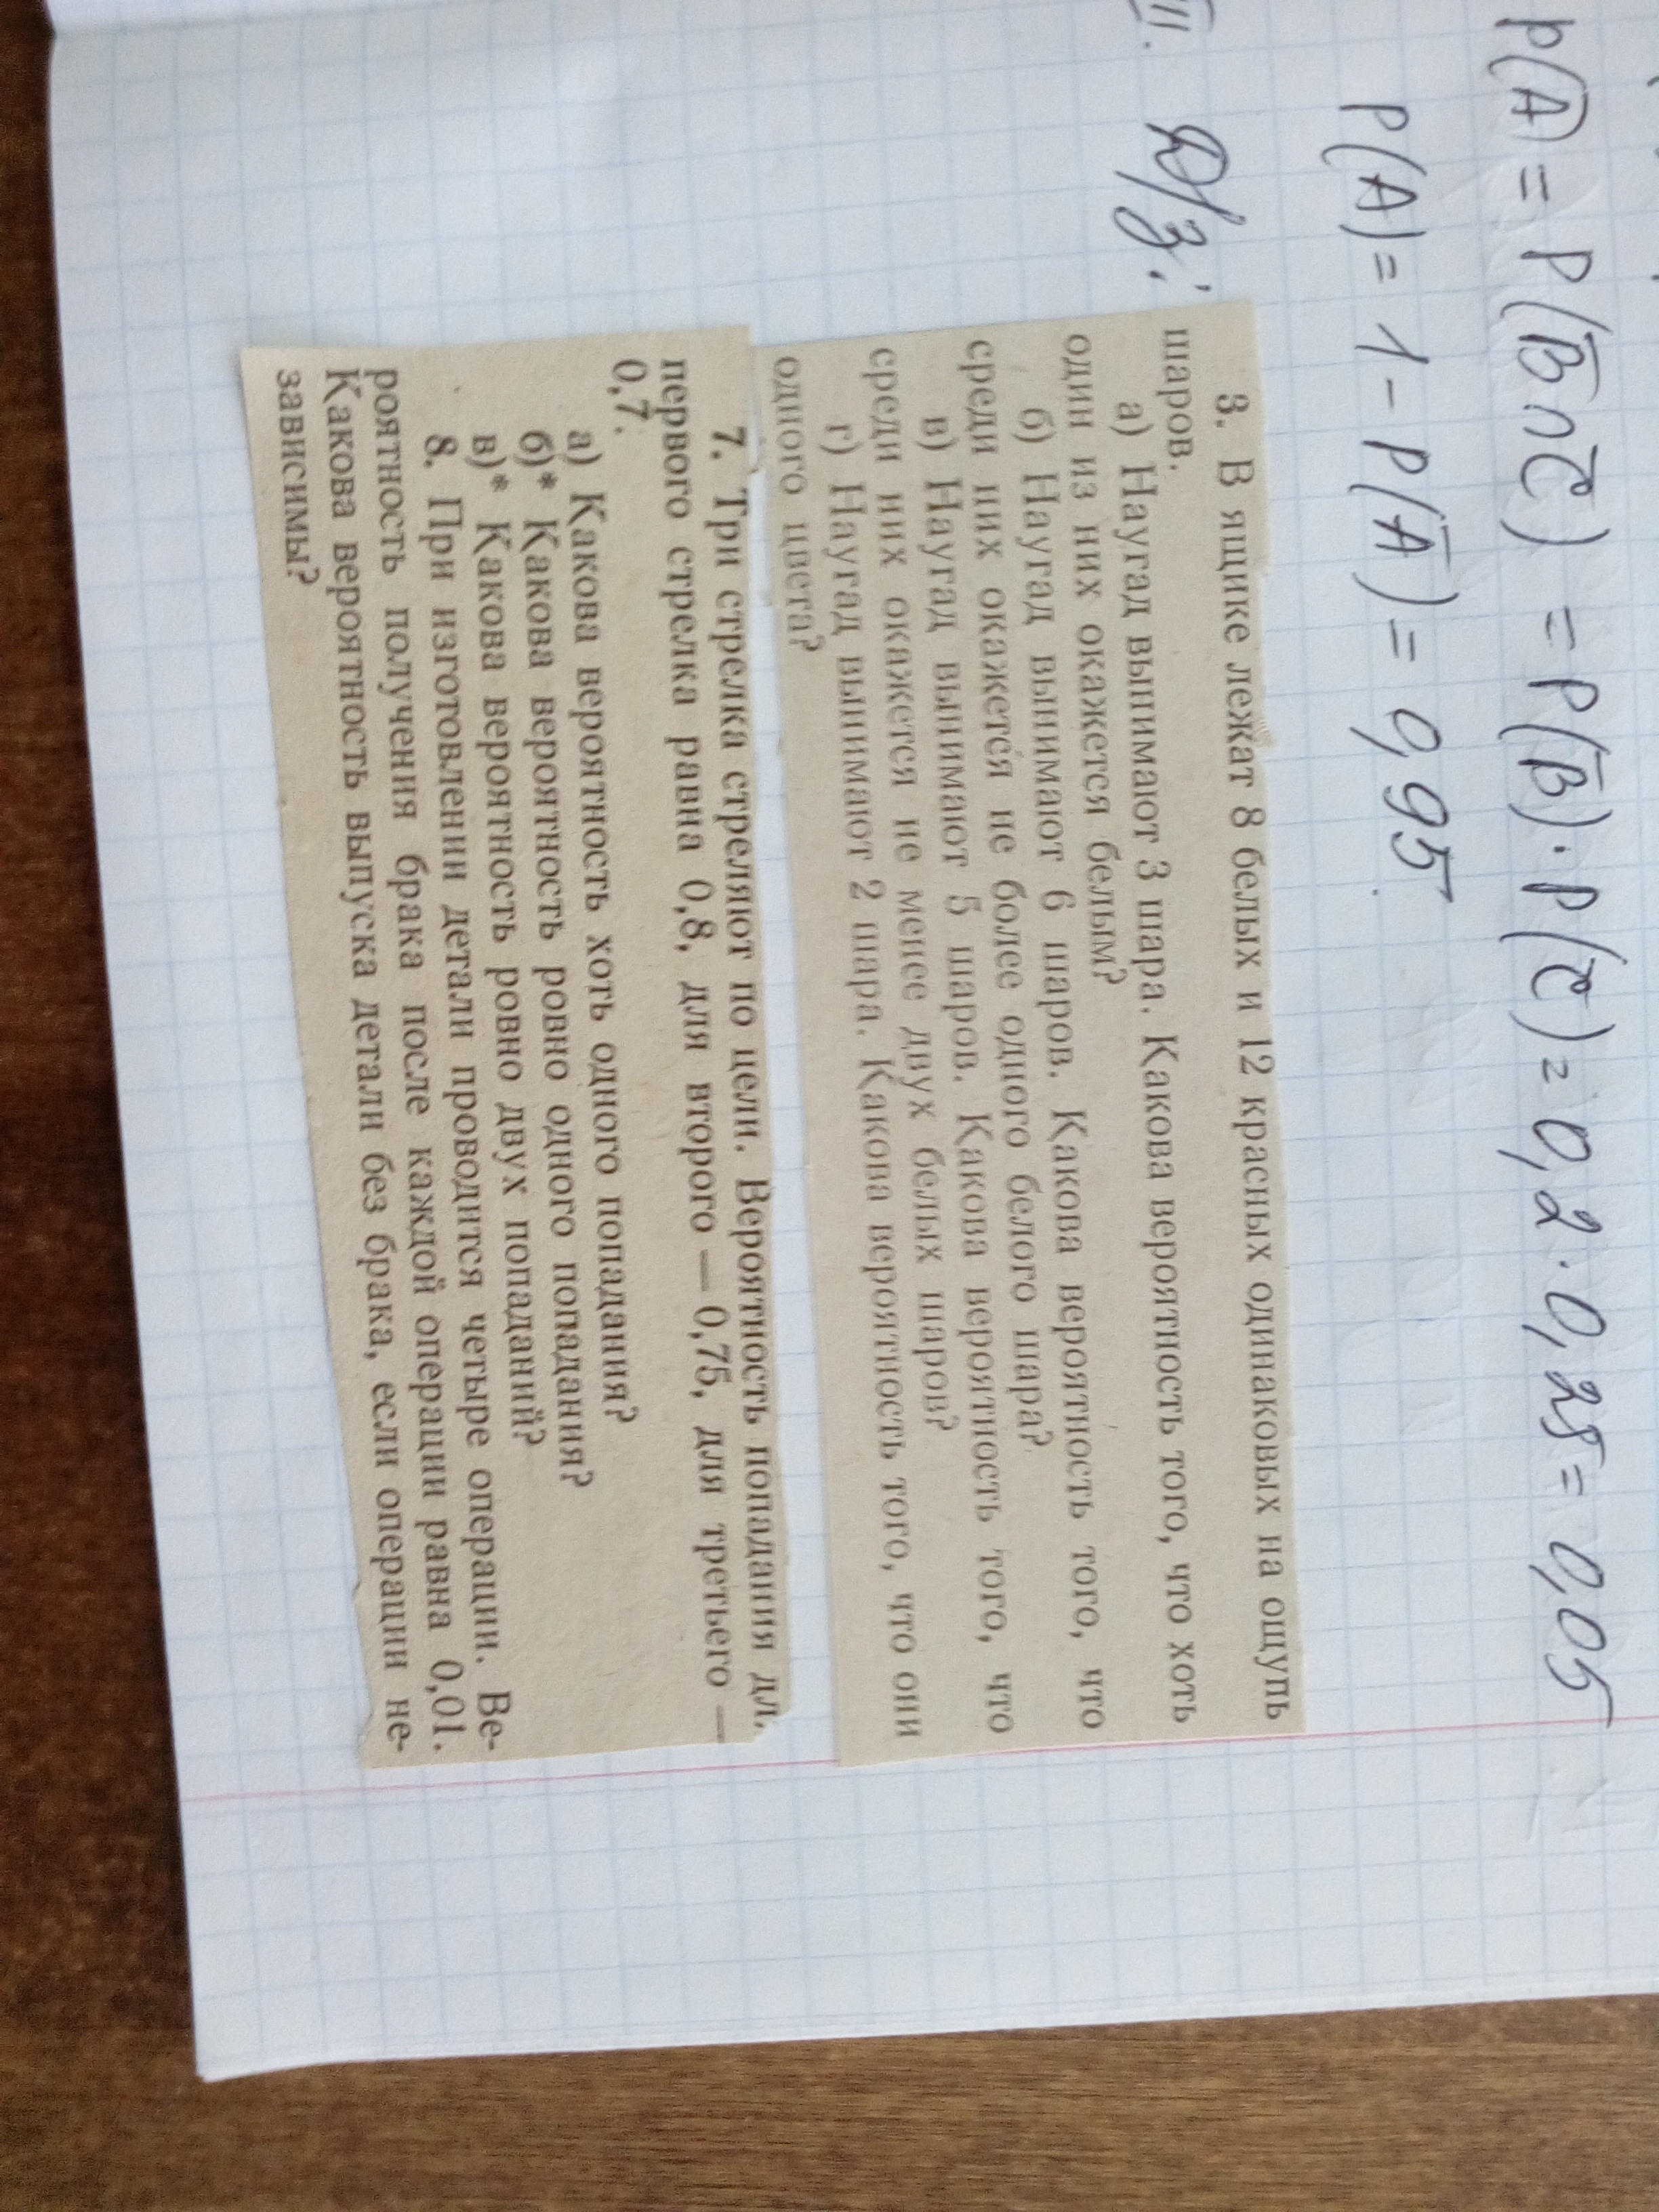 P(A̅) = P(B̅∩C̅) = P(B̅)·P(C̅) = 0,2·0,25 = 0,05
P(A) = 1 - P(A̅) = 0,95
Д/з:
3. В ящике лежат 8 белых и 12 красных одинаковых на ощупь
шаров.
а) Наугад вынимают 3 шара. Какова вероятность того, что хоть
один из них окажется белым?
б) Наугад вынимают 6 шаров. Какова вероятность того, что
среди них окажется не более одного белого шара?
в) Наугад вынимают 5 шаров. Какова вероятность того, что
среди них окажется не менее двух белых шаров?
г) Наугад вынимают 2 шара. Какова вероятность того, что они
одного цвета?
7. Три стрелка стреляют по цели. Вероятность попадания
первого стрелка равна 0,8, для второго — 0,75, для третьего —
0,7.
а) Какова вероятность хоть одного попадания?
б)* Какова вероятность ровно одного попадания?
в)* Какова вероятность ровно двух попаданий?
8. При изготовлении детали проводится четыре операции. Ве-
роятность получения брака после каждой операции равна 0,01.
Какова вероятность выпуска детали без брака, если операции не-
зависимы?